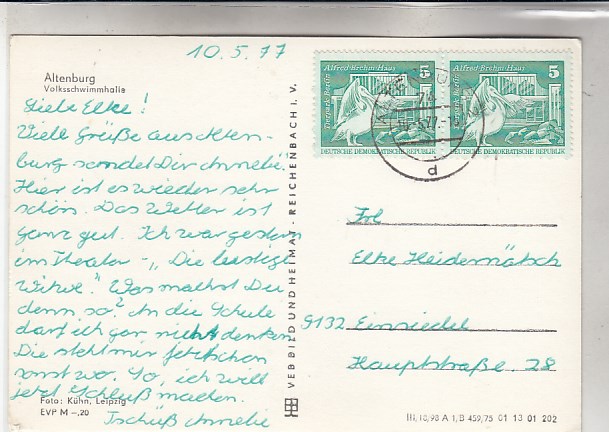 10.5.77
Altenburg
Volksschwimmhalle
Liebe Elke!
Viele Grüße aus Alten-
burg sendet Dir Annelie.
Hier ist es wieder sehr
schön. Das Wetter ist
ganz gut. Ich war gestern
im Theater - „Die lustige
Witwe." Was machst Du
denn so? An die Schule
darf ich gar nicht denken
Die steht mir jetzt schon
sonst wo. So, ich will
jetzt Schluß machen.
Tschüß Annelie
Foto: Kühn, Leipzig
EVP M -,20
VEB BILD UND HEIMAT · REICHENBACH I. V.
Alfred-Brehm-Haus 5
Tierpark Berlin
DEUTSCHE DEMOKRATISCHE REPUBLIK
Alfred-Brehm-Haus 5
Tierpark Berlin
DEUTSCHE DEMOKRATISCHE REPUBLIK
d
Frl
Elke Heidernätsch
9132 Einsiedel
Hauptstraße. 28
III/18/98 A 1/B 459/75 01 13 01 202